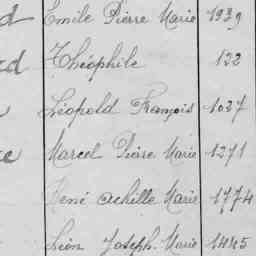 Emile Pierre Marie 1939
Théophile 122
Léopold François 1037
Marcel Pierre Marie 1271
René Achille Marie 1774
Léon Joseph Marie 1445